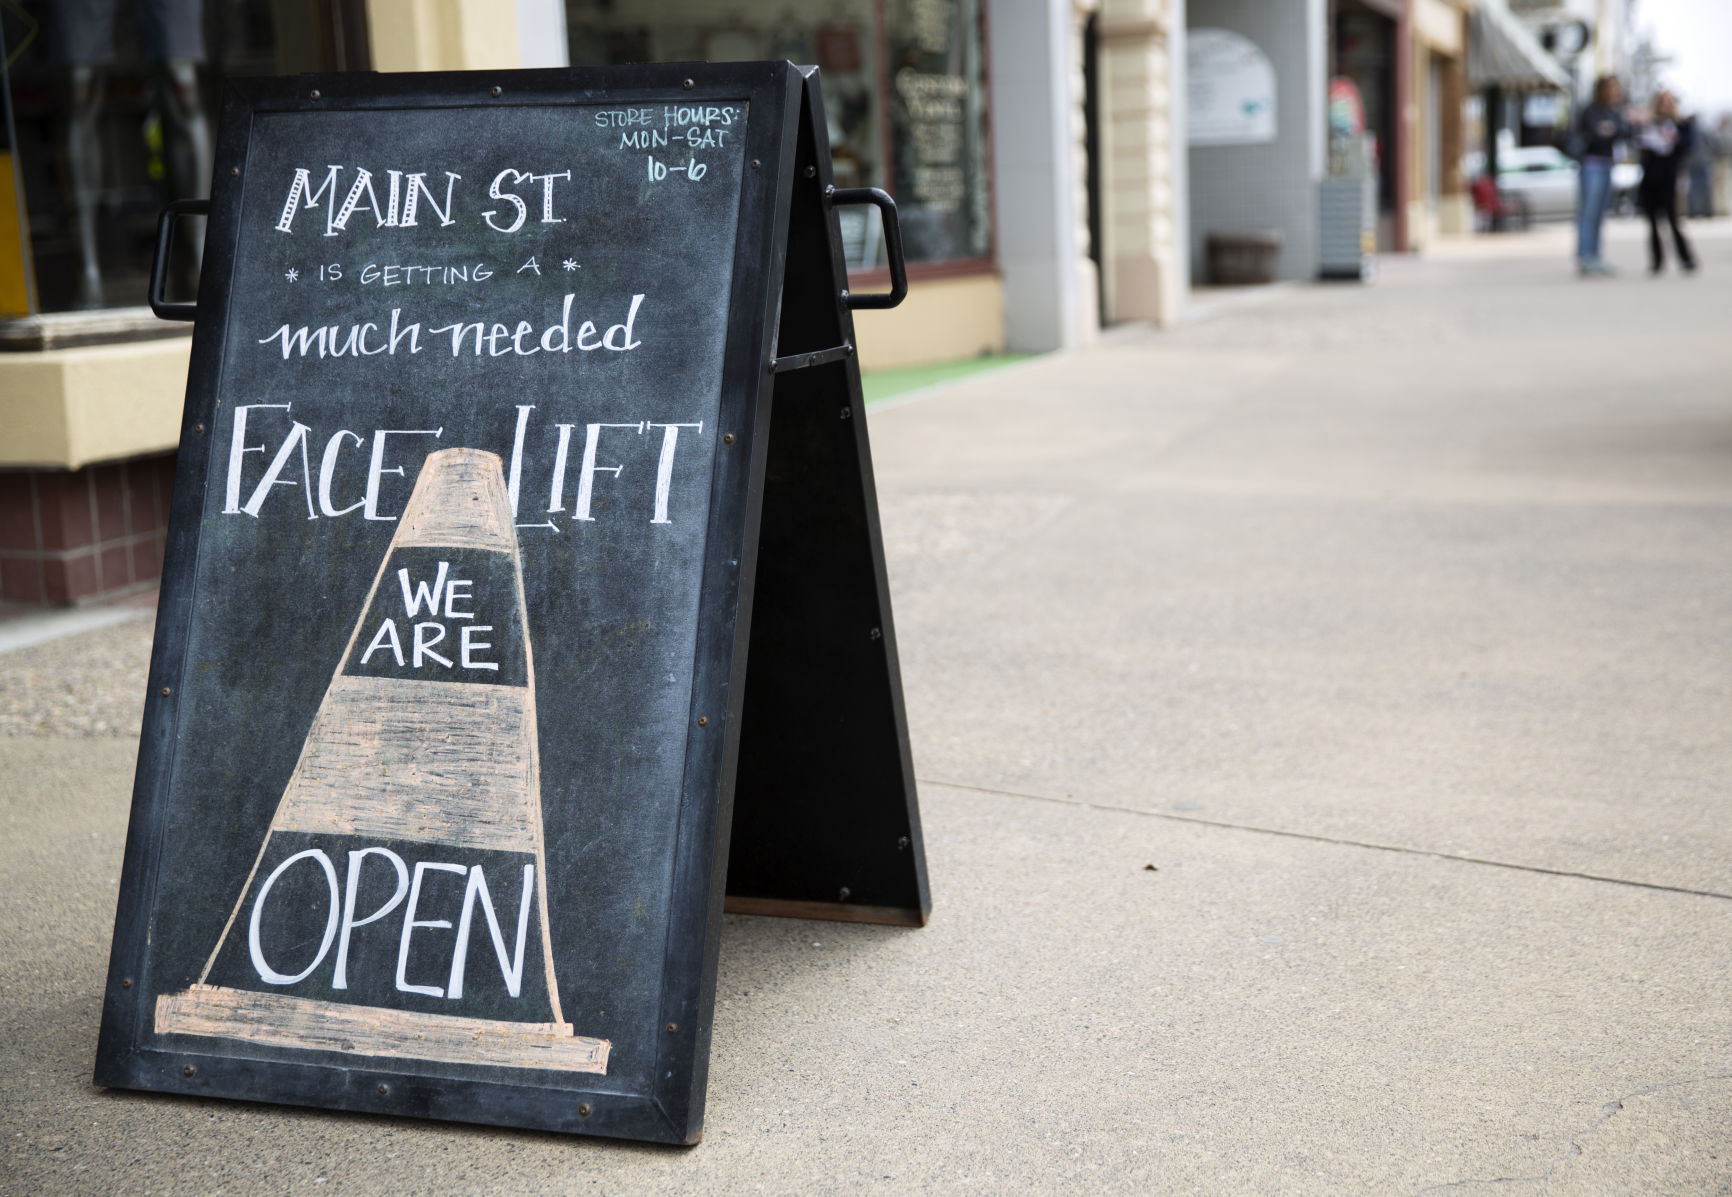 STORE HOURS:
MON-SAT
10-6
MAIN ST.
* IS GETTING A *
much needed
FACE LIFT
WE
ARE
OPEN